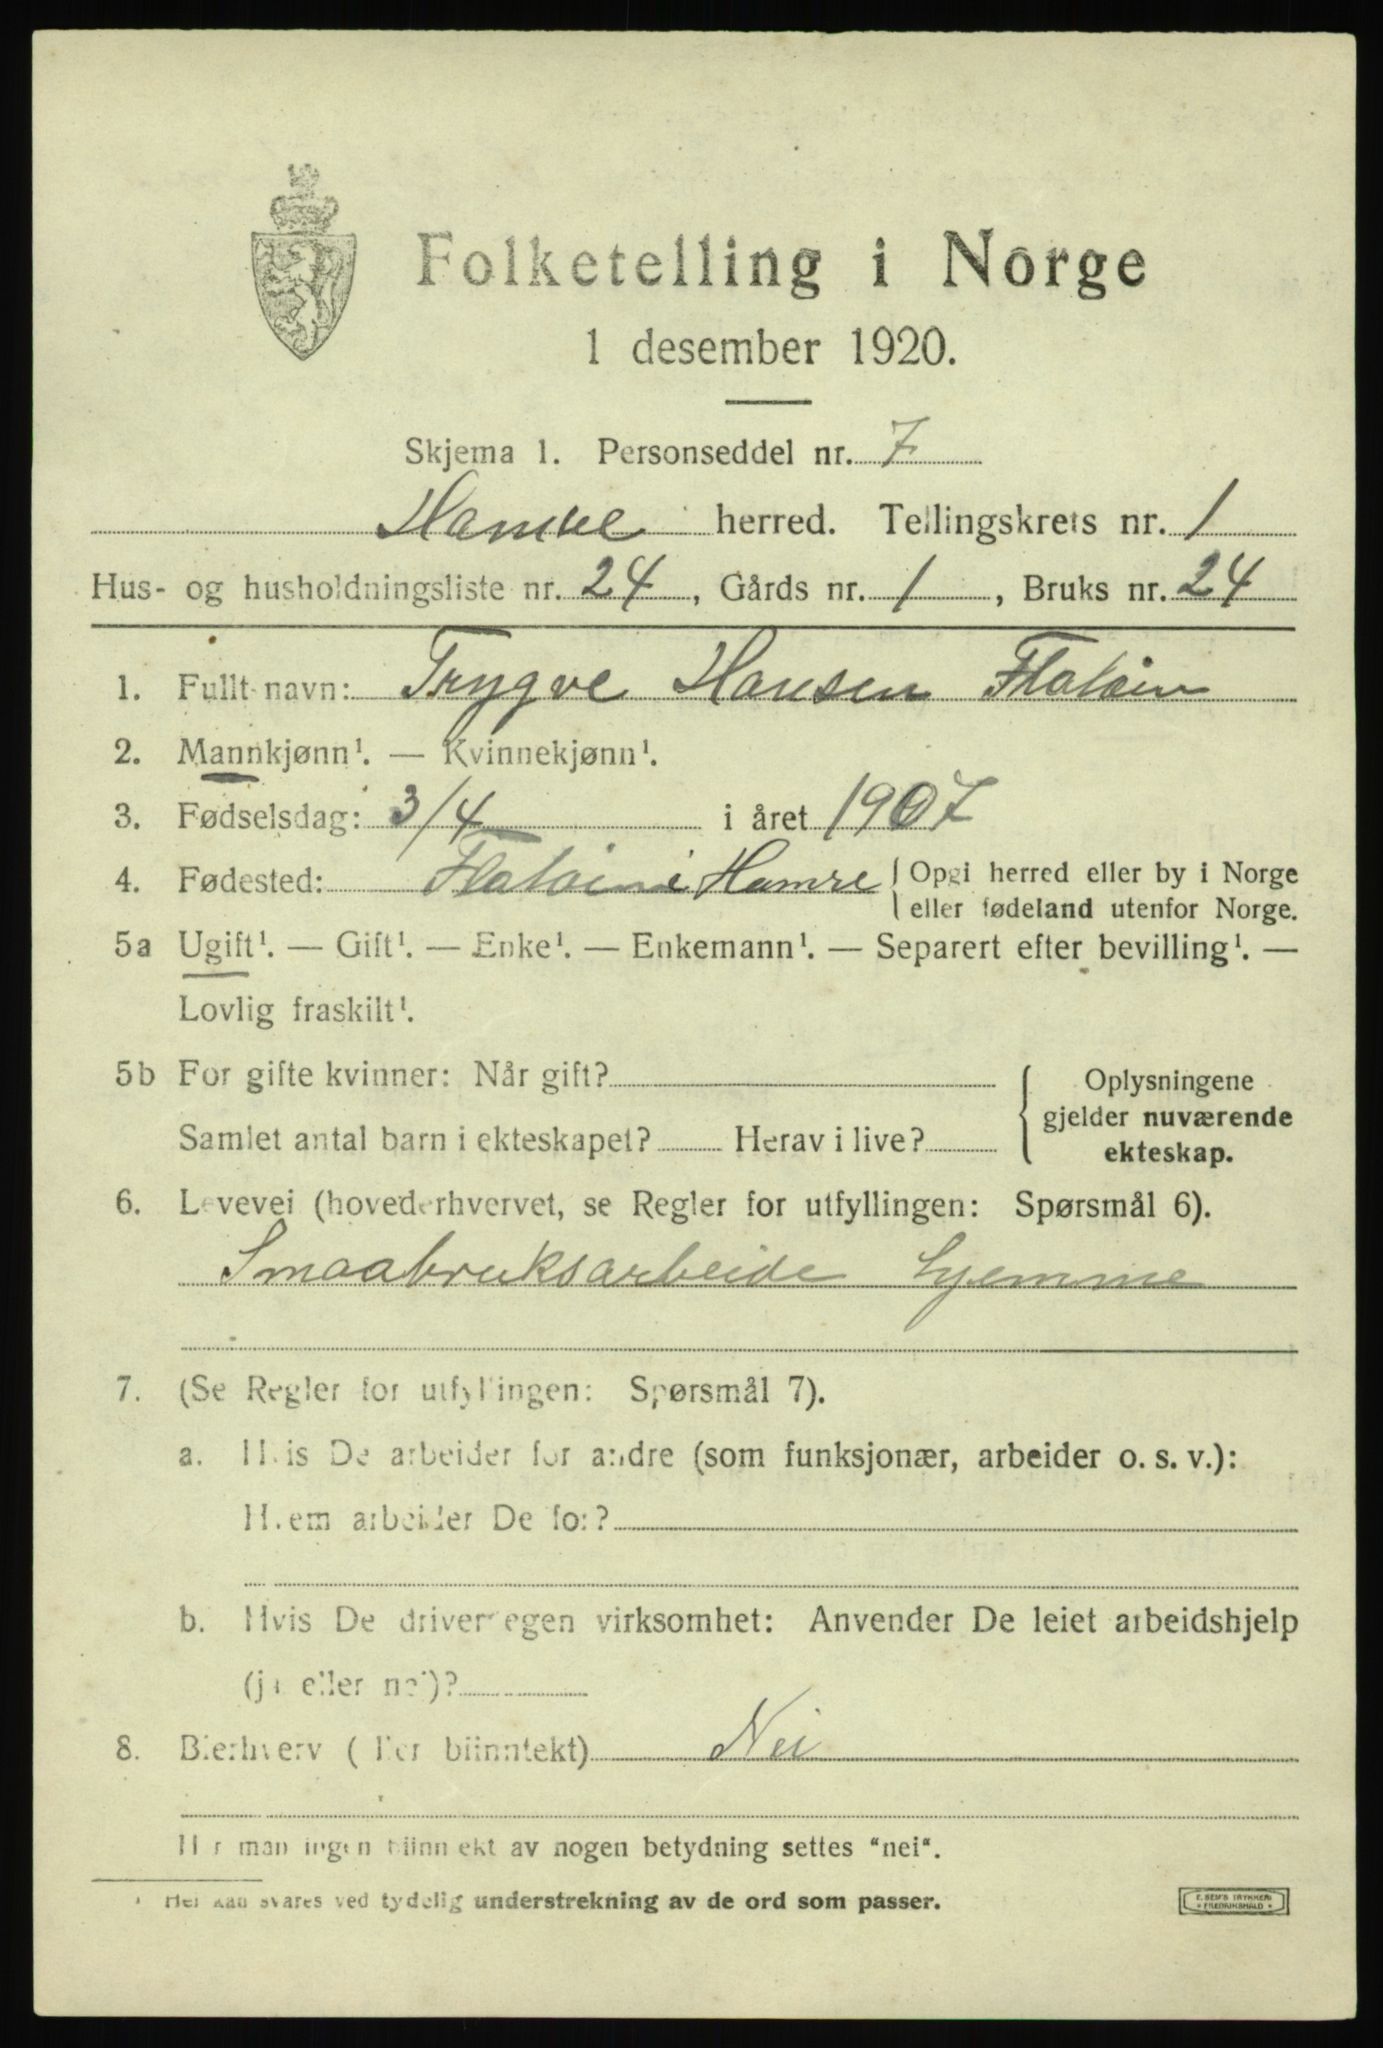 Folketelling i Norge
1 desember 1920.
Skjema 1. Personseddel nr. 7
Hamre herred. Tellingskrets nr. 1
Hus- og husholdningsliste nr. 24, Gårds nr. 1, Bruks nr. 24
1. Fullt navn: Trygve Hansen Flatøin
2. Mannkjønn¹. — Kvinnekjønn¹.
3. Fødselsdag: 3/4 i året 1907
4. Fødested: Flatøin i Hamre { Opgi herred eller by i Norge
eller fødeland utenfor Norge.
5a Ugift¹. — Gift¹. — Enke¹. — Enkemann¹. — Separert efter bevilling¹. —
Lovlig fraskilt¹.
5b For gifte kvinner: Når gift? { Oplysningene
gjelder nuværende
Samlet antal barn i ekteskapet? Herav i live?
ekteskap.
6. Levevei (hovederhvervet, se Regler for utfyllingen: Spørsmål 6).
Smaabruksarbeide hjemme
7. (Se Regler for utfyllingen: Spørsmål 7).
a. Hvis De arbeider for andre (som funksjonær, arbeider o. s. v.):
Hvem arbeider De for?
b. Hvis De driver egen virksomhet: Anvender De leiet arbeidshjelp
(ja eller nei)?
8. Bierhverv (eller biinntekt) Nei
Har man ingen biinntekt av nogen betydning settes "nei".
¹ Her kan svares ved tydelig understrekning av de ord som passer.
E. SEM'S TRYKKERI
* FREDRIKSHALD *